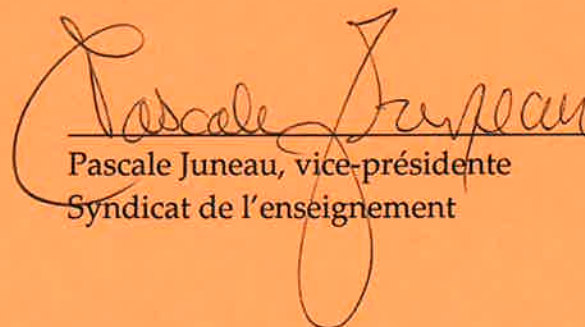 Pascale Juneau
Pascale Juneau, vice-présidente
Syndicat de l'enseignement